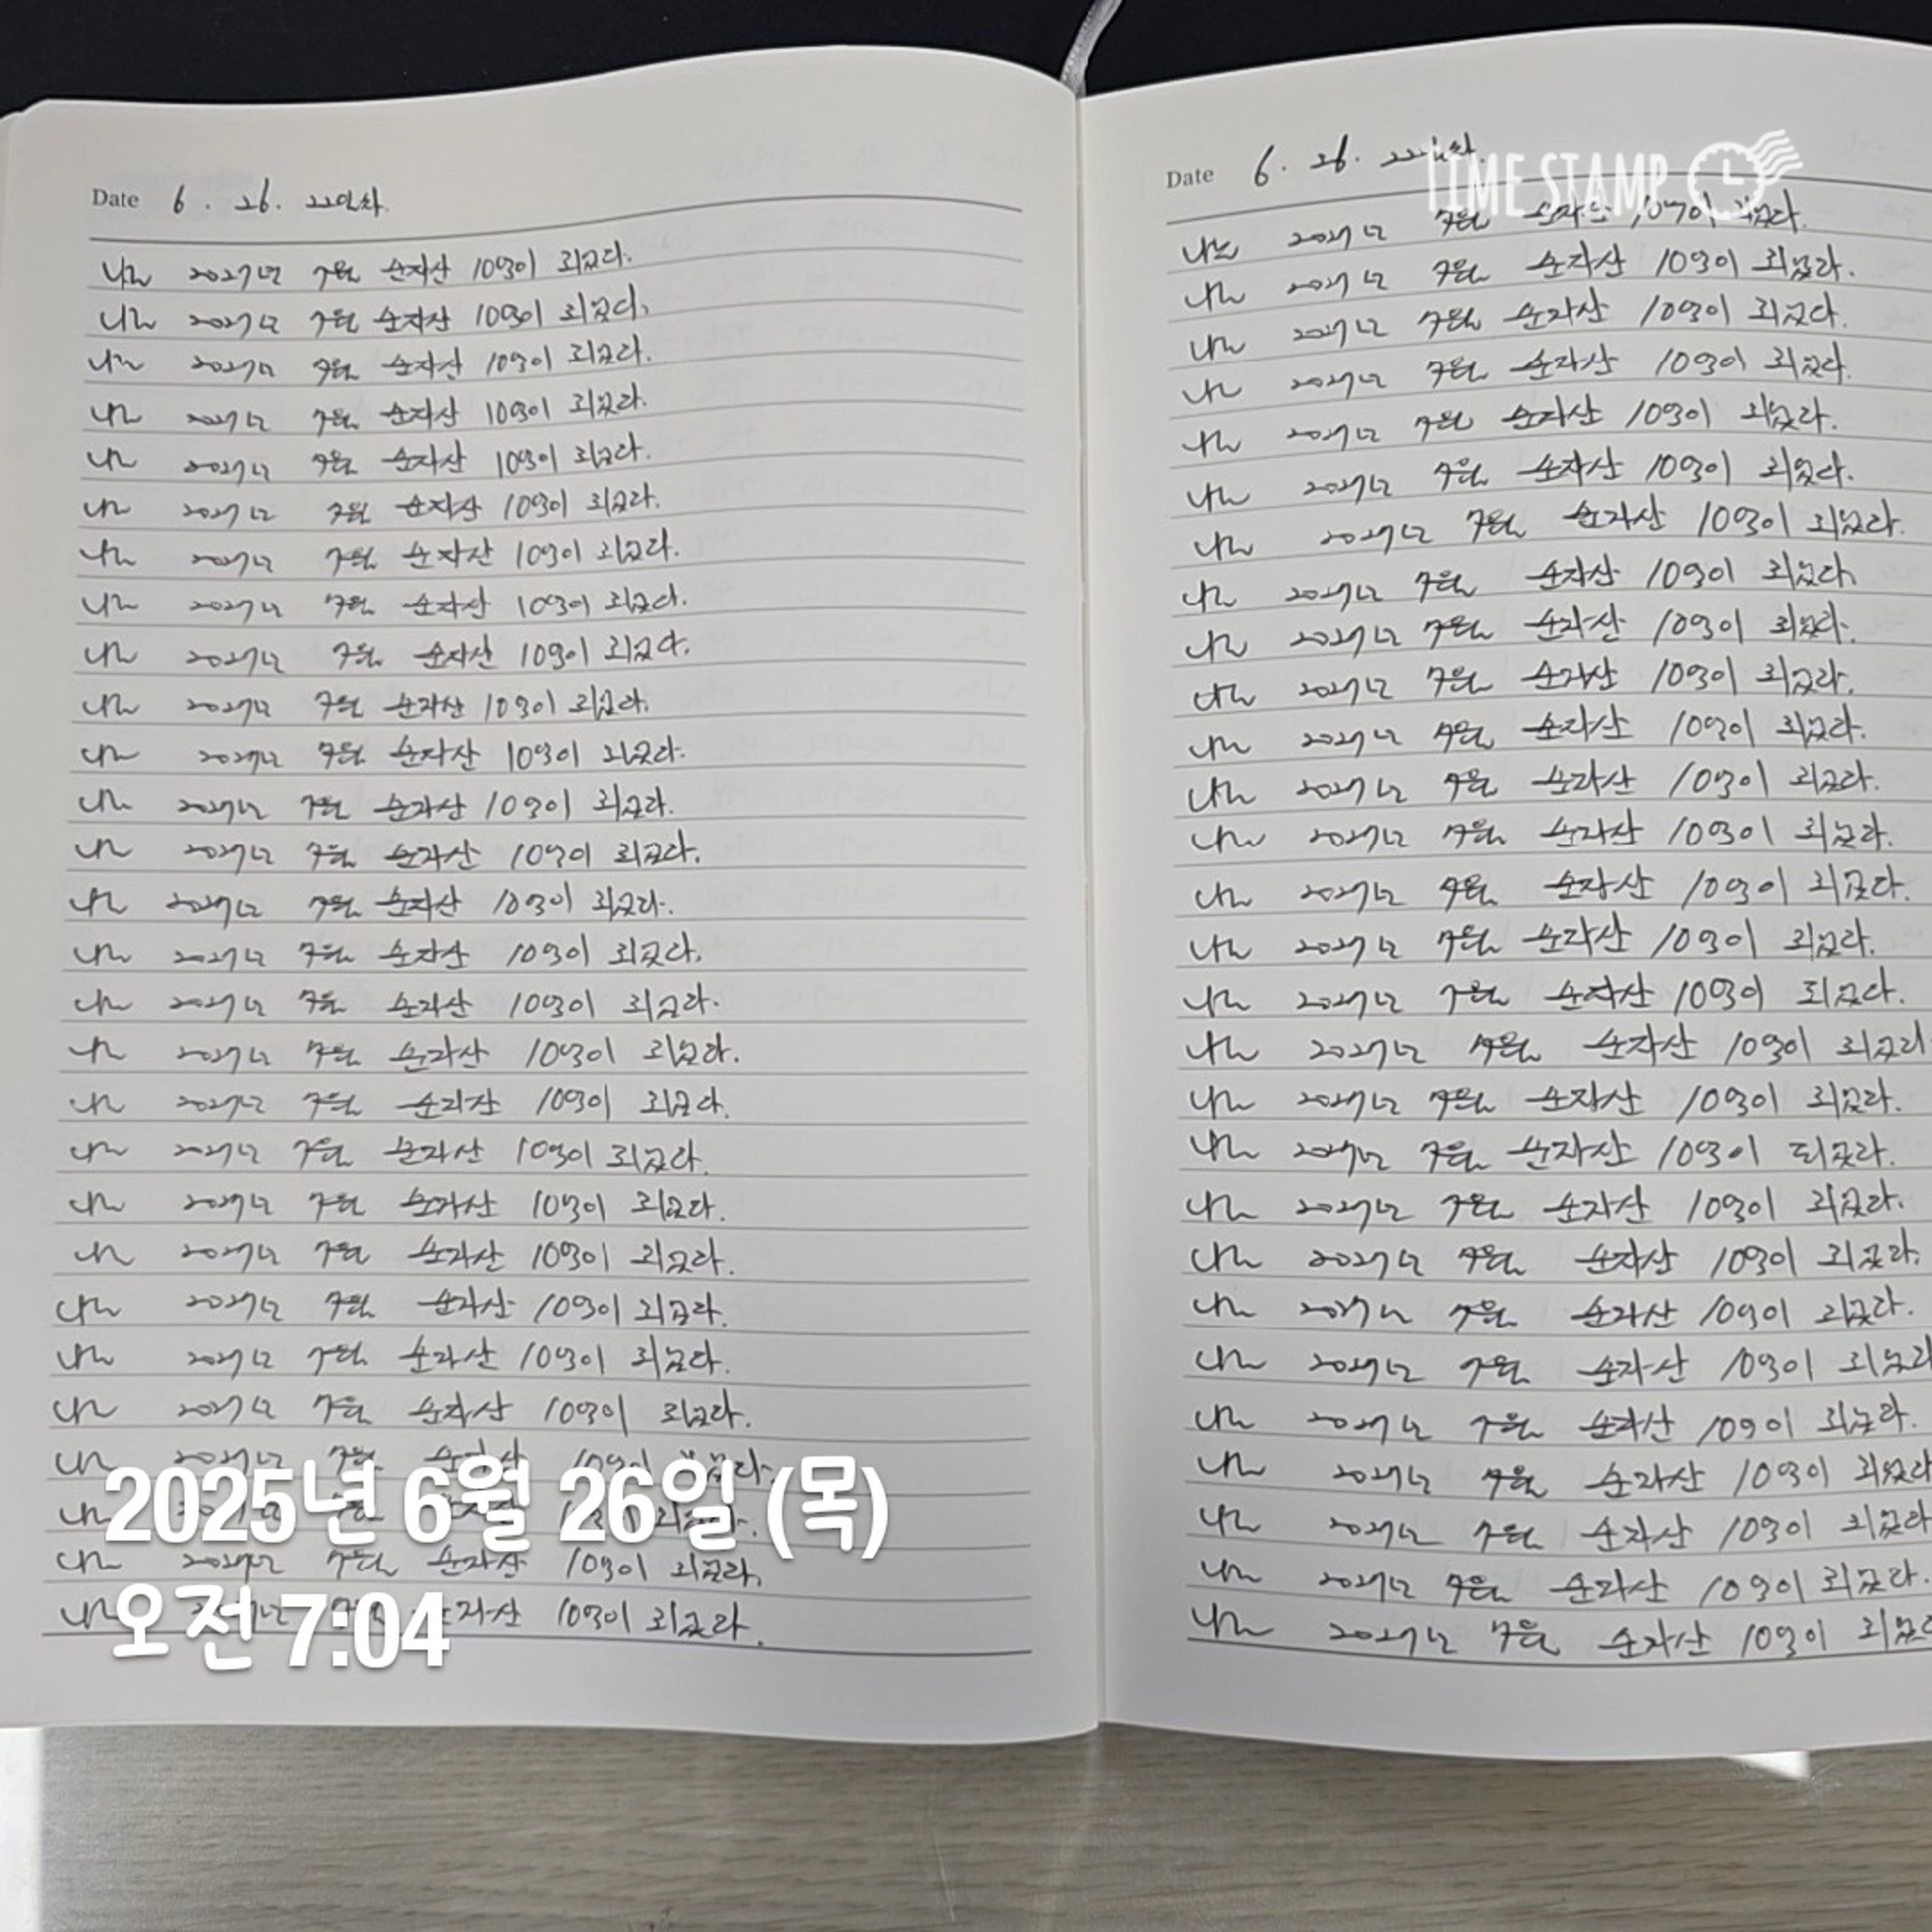 Date 6. 26. 22일차.
나는 2027년 7월 순자산 10억이 되었다.
나는 2027년 7월 순자산 10억이 되었다.
나는 2027년 7월 순자산 10억이 되었다.
나는 2027년 7월 순자산 10억이 되었다.
나는 2027년 7월 순자산 10억이 되었다.
나는 2027년 7월 순자산 10억이 되었다.
나는 2027년 7월 순자산 10억이 되었다.
나는 2027년 7월 순자산 10억이 되었다.
나는 2027년 7월 순자산 10억이 되었다.
나는 2027년 7월 순자산 10억이 되었다.
나는 2027년 7월 순자산 10억이 되었다.
나는 2027년 7월 순자산 10억이 되었다.
나는 2027년 7월 순자산 10억이 되었다.
나는 2027년 7월 순자산 10억이 되었다.
나는 2027년 7월 순자산 10억이 되었다.
나는 2027년 7월 순자산 10억이 되었다.
나는 2027년 7월 순자산 10억이 되었다.
나는 2027년 7월 순자산 10억이 되었다.
나는 2027년 7월 순자산 10억이 되었다.
나는 2027년 7월 순자산 10억이 되었다.
나는 2027년 7월 순자산 10억이 되었다.
나는 2027년 7월 순자산 10억이 되었다.
나는 2027년 7월 순자산 10억이 되었다.
나는 2027년 7월 순자산 10억이 되었다.
나는 2027년 7월 순자산 10억이 되었다.
나는 2027년 7월 순자산 10억이 되었다.
나는 2027년 7월 순자산 10억이 되었다.
나는 2027년 7월 순자산 10억이 되었다.
2025년 6월 26일 (목)
오전 7:04
Date 6. 26. 22일차.
TIME STAMP
나는 2027년 7월 순자산 10억이 되었다.
나는 2027년 7월 순자산 10억이 되었다.
나는 2027년 7월 순자산 10억이 되었다.
나는 2027년 7월 순자산 10억이 되었다.
나는 2027년 7월 순자산 10억이 되었다.
나는 2027년 7월 순자산 10억이 되었다.
나는 2027년 7월 순자산 10억이 되었다.
나는 2027년 7월 순자산 10억이 되었다.
나는 2027년 7월 순자산 10억이 되었다.
나는 2027년 7월 순자산 10억이 되었다.
나는 2027년 7월 순자산 10억이 되었다.
나는 2027년 7월 순자산 10억이 되었다.
나는 2027년 7월 순자산 10억이 되었다.
나는 2027년 7월 순자산 10억이 되었다.
나는 2027년 7월 순자산 10억이 되었다.
나는 2027년 7월 순자산 10억이 되었다.
나는 2027년 7월 순자산 10억이 되었다
나는 2027년 7월 순자산 10억이 되었다.
나는 2027년 7월 순자산 10억이 되었다.
나는 2027년 7월 순자산 10억이 되었다.
나는 2027년 7월 순자산 10억이 되었다.
나는 2027년 7월 순자산 10억이 되었다.
나는 2027년 7월 순자산 10억이 되었다
나는 2027년 7월 순자산 10억이 되었다.
나는 2027년 7월 순자산 10억이 되었다
나는 2027년 7월 순자산 10억이 되었다
나는 2027년 7월 순자산 10억이 되었다.
나는 2027년 7월 순자산 10억이 되었다